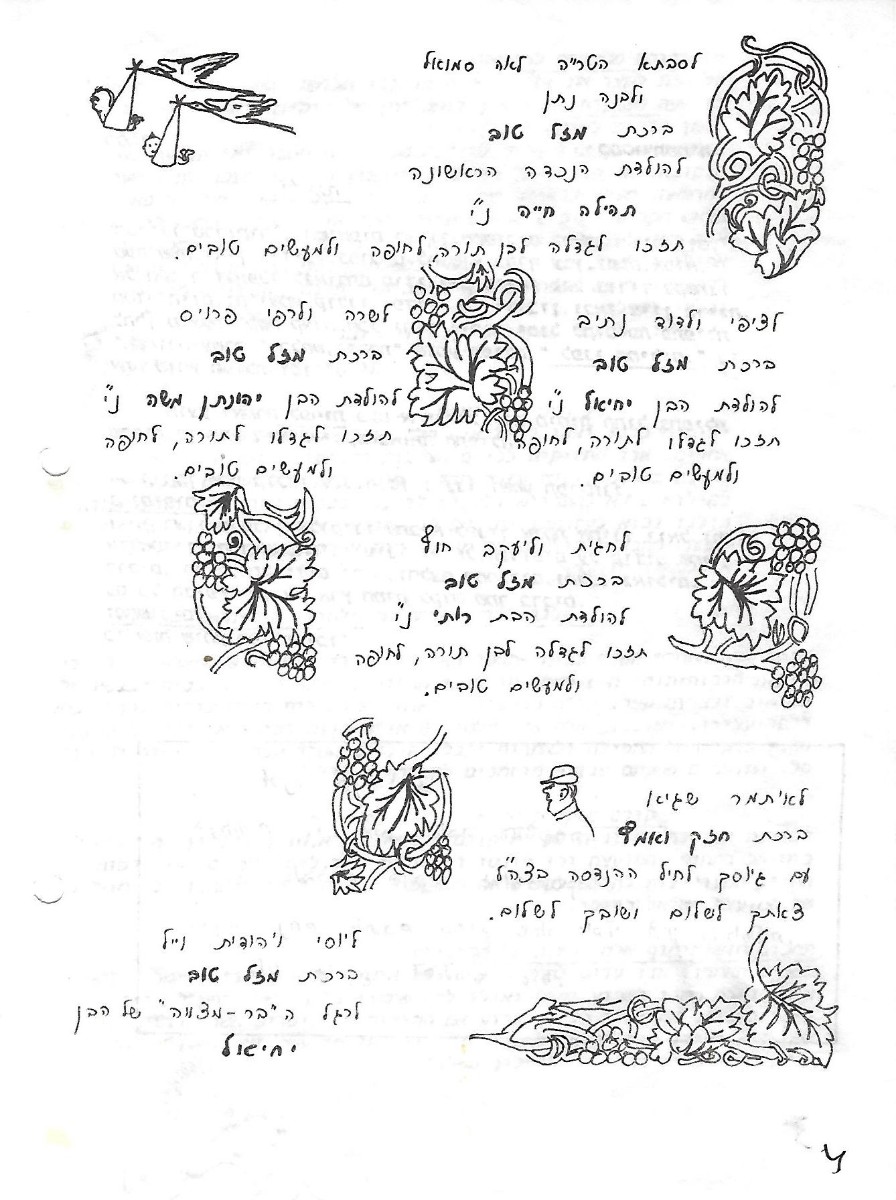 לסבתא הטריה לאה סמואל
ולבנה נתן
ברכת מזל טוב
להולדת הנכדה הראשונה
תהילה חייה נ"י
תזכו לגדלה לבן תורה, לחופה ולמעשים טובים.
לציפי ולדוד נתיב
ברכת מזל טוב
להולדת הבן יחיאל נ"י
תזכו לגדלו לתורה, לחופה
ולמעשים טובים.
לשרה ולרפי פרויס
ברכת מזל טוב
להולדת הבן יהונתן משה נ"י
תזכו לגדלו לתורה, לחופה
ולמעשים טובים.
לחגית וליעקב חוף
ברכת מזל טוב
להולדת הבת רותי נ"י
תזכו לגדלה לבן תורה, לחופה
ולמעשים טובים.
לאיתמר שגיא
ברכת חזק ואמץ
עם גיוסך לחיל ההנדסה בצה"ל
צאתך לשלום ושובך לשלום.
ליוסי ויהודית וייל
ברכת מזל טוב
לרגל ה"בר-מצווה" של הבן
יחיאל